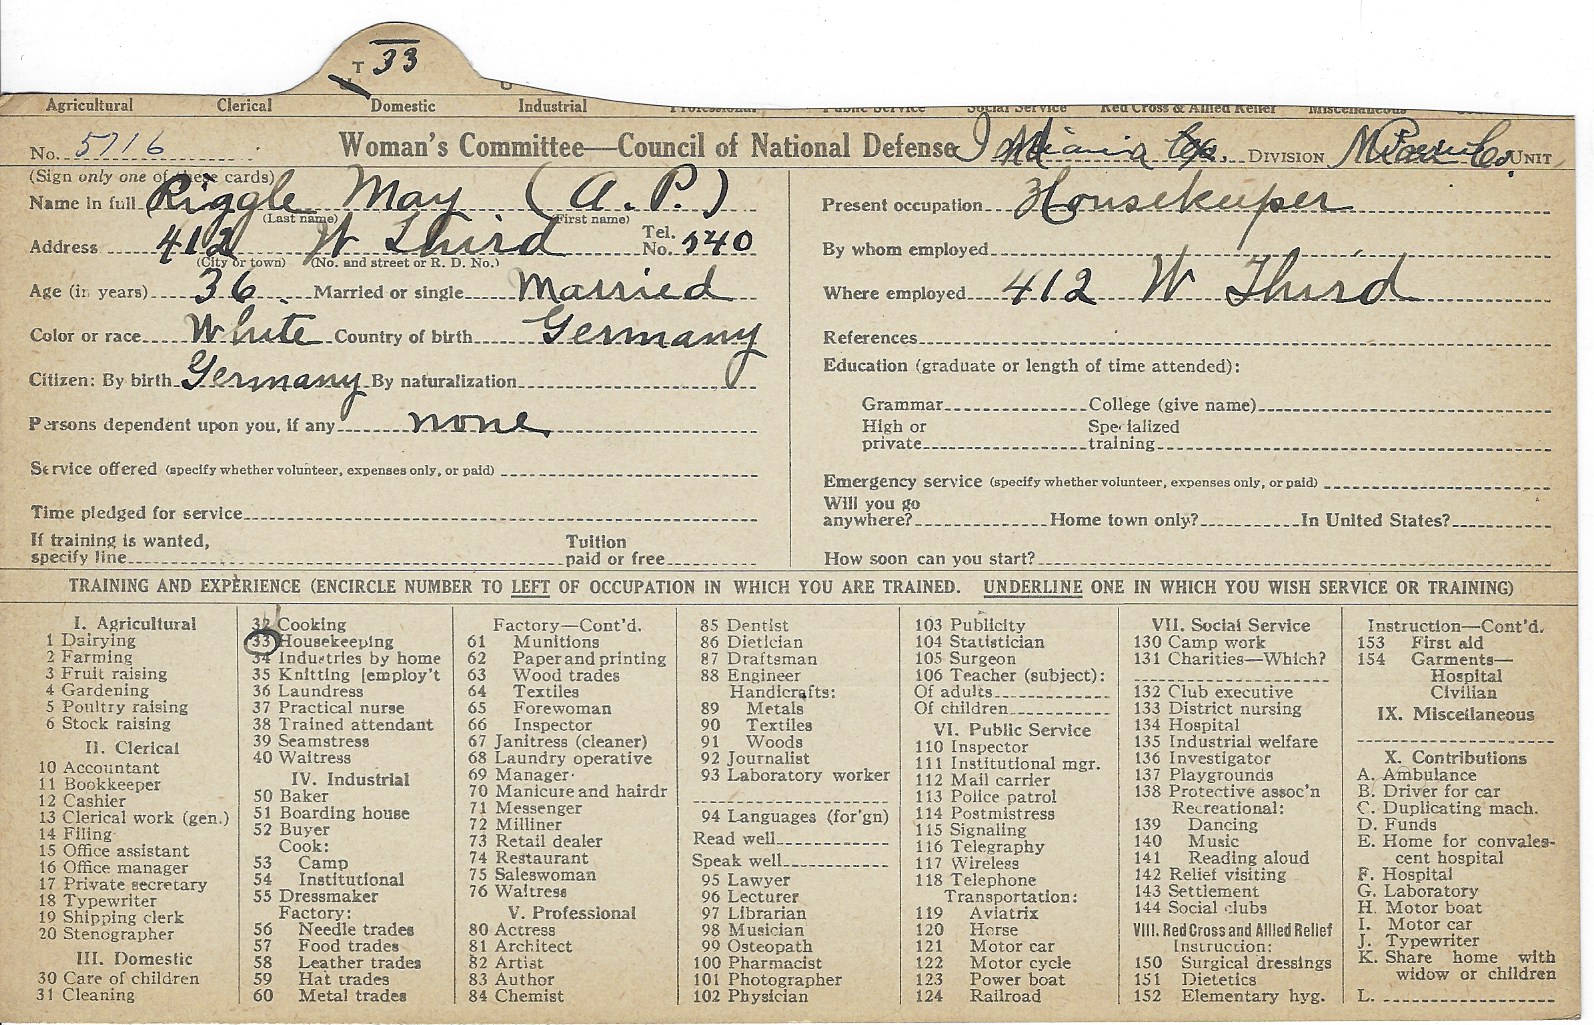 T 33
Agricultural Clerical Domestic Industrial Professional Public Service Social Service Red Cross & Allied Relief Miscellaneous
No. 5716 Woman's Committee—Council of National Defense DIVISION UNIT
(Sign only one of these cards)
Name in full Riggle May (A. P.)
(Last name) (First name)
Address 412 W Third Tel. No. 540
(City or town) (No. and street or R. D. No.)
Age (in years) 36 Married or single Married
Color or race White Country of birth Germany
Citizen: By birth Germany By naturalization
Persons dependent upon you, if any none
Service offered (specify whether volunteer, expenses only, or paid)
Time pledged for service
If training is wanted, specify line Tuition paid or free
Present occupation Housekeeper
By whom employed
Where employed 412 W Third
References
Education (graduate or length of time attended):
Grammar College (give name)
High or private Specialized training
Emergency service (specify whether volunteer, expenses only, or paid)
Will you go anywhere? Home town only? In United States?
How soon can you start?
TRAINING AND EXPERIENCE (ENCIRCLE NUMBER TO LEFT OF OCCUPATION IN WHICH YOU ARE TRAINED. UNDERLINE ONE IN WHICH YOU WISH SERVICE OR TRAINING)
I. Agricultural
1 Dairying
2 Farming
3 Fruit raising
4 Gardening
5 Poultry raising
6 Stock raising
II. Clerical
10 Accountant
11 Bookkeeper
12 Cashier
13 Clerical work (gen.)
14 Filing
15 Office assistant
16 Office manager
17 Private secretary
18 Typewriter
19 Shipping clerk
20 Stenographer
III. Domestic
30 Care of children
31 Cleaning
32 Cooking
33 Housekeeping
34 Industries by home
35 Knitting [employ't
36 Laundress
37 Practical nurse
38 Trained attendant
39 Seamstress
40 Waitress
IV. Industrial
50 Baker
51 Boarding house
52 Buyer
Cook:
53 Camp
54 Institutional
55 Dressmaker
Factory:
56 Needle trades
57 Food trades
58 Leather trades
59 Hat trades
60 Metal trades
Factory—Cont'd.
61 Munitions
62 Paper and printing
63 Wood trades
64 Textiles
65 Forewoman
66 Inspector
67 Janitress (cleaner)
68 Laundry operative
69 Manager
70 Manicure and hairdr
71 Messenger
72 Milliner
73 Retail dealer
74 Restaurant
75 Saleswoman
76 Waitress
V. Professional
80 Actress
81 Architect
82 Artist
83 Author
84 Chemist
85 Dentist
86 Dietician
87 Draftsman
88 Engineer
Handicrafts:
89 Metals
90 Textiles
91 Woods
92 Journalist
93 Laboratory worker
94 Languages (for'gn)
Read well
Speak well
95 Lawyer
96 Lecturer
97 Librarian
98 Musician
99 Osteopath
100 Pharmacist
101 Photographer
102 Physician
103 Publicity
104 Statistician
105 Surgeon
106 Teacher (subject):
Of adults
Of children
VI. Public Service
110 Inspector
111 Institutional mgr.
112 Mail carrier
113 Police patrol
114 Postmistress
115 Signaling
116 Telegraphy
117 Wireless
118 Telephone
Transportation:
119 Aviatrix
120 Horse
121 Motor car
122 Motor cycle
123 Power boat
124 Railroad
VII. Social Service
130 Camp work
131 Charities—Which?
132 Club executive
133 District nursing
134 Hospital
135 Industrial welfare
136 Investigator
137 Playgrounds
138 Protective assoc'n
Recreational:
139 Dancing
140 Music
141 Reading aloud
142 Relief visiting
143 Settlement
144 Social clubs
VIII. Red Cross and Allied Relief
Instruction:
150 Surgical dressings
151 Dietetics
152 Elementary hyg.
Instruction—Cont'd.
153 First aid
154 Garments—
Hospital
Civilian
IX. Miscellaneous
X. Contributions
A. Ambulance
B. Driver for car
C. Duplicating mach.
D. Funds
E. Home for convales-
cent hospital
F. Hospital
G. Laboratory
H. Motor boat
I. Motor car
J. Typewriter
K. Share home with
widow or children
L.